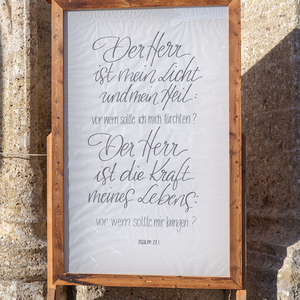 Der Herr
ist mein Licht
und mein Heil:
vor wem sollte ich mich fürchten?
Der Herr
ist die Kraft
meines Lebens:
vor wem sollte mir bangen?
PSALM 27,1